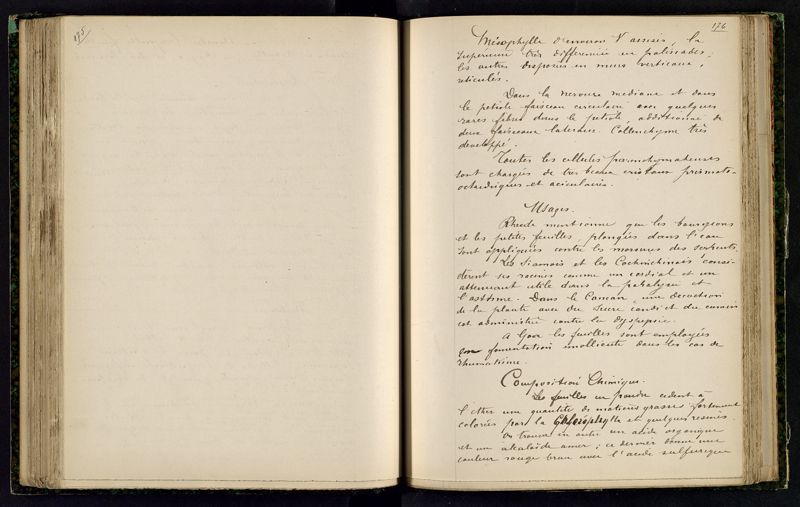 175
176
Mésophylle d'environ V assises, la
supérieure très différenciée en palissades,
les autres disposées en murs verticaux,
réticulés.
Dans la nervure médiane et dans
le pétiole faisceau circulaire avec quelques
rares fibres dans le pétiole, additionné de
deux faisceaux latéraux. Collenchyme très
développé.
Toutes les cellules parenchymateuses
sont chargées de très beaux cristaux prismato-
octaédriques et aciculaires.
Usages.
Rheede mentionne que les bourgeons
et les petites feuilles, plongés dans l'eau
sont appliqués contre les morsures des serpents.
Les Siamois et les Cochinchinois consi-
dèrent ses racines comme un cordial et un
atténuant utile dans la paralysie et
l'asthme. Dans le Concan, une décoction
de la plante avec du sucre candi et du cumin
est administrée contre la dyspepsie.
A Goa les feuilles sont employées
en fomentation émolliente dans les cas de
rhumatisme.
Composition Chimique.
Les feuilles en poudre cèdent à
l'éther une quantité de matières grasses fortement
colorées par la Chlorophylle et quelques résines.
On trouve en outre un acide organique
et un alcaloïde amer; ce dernier donne une
couleur rouge brun avec l'acide sulfurique